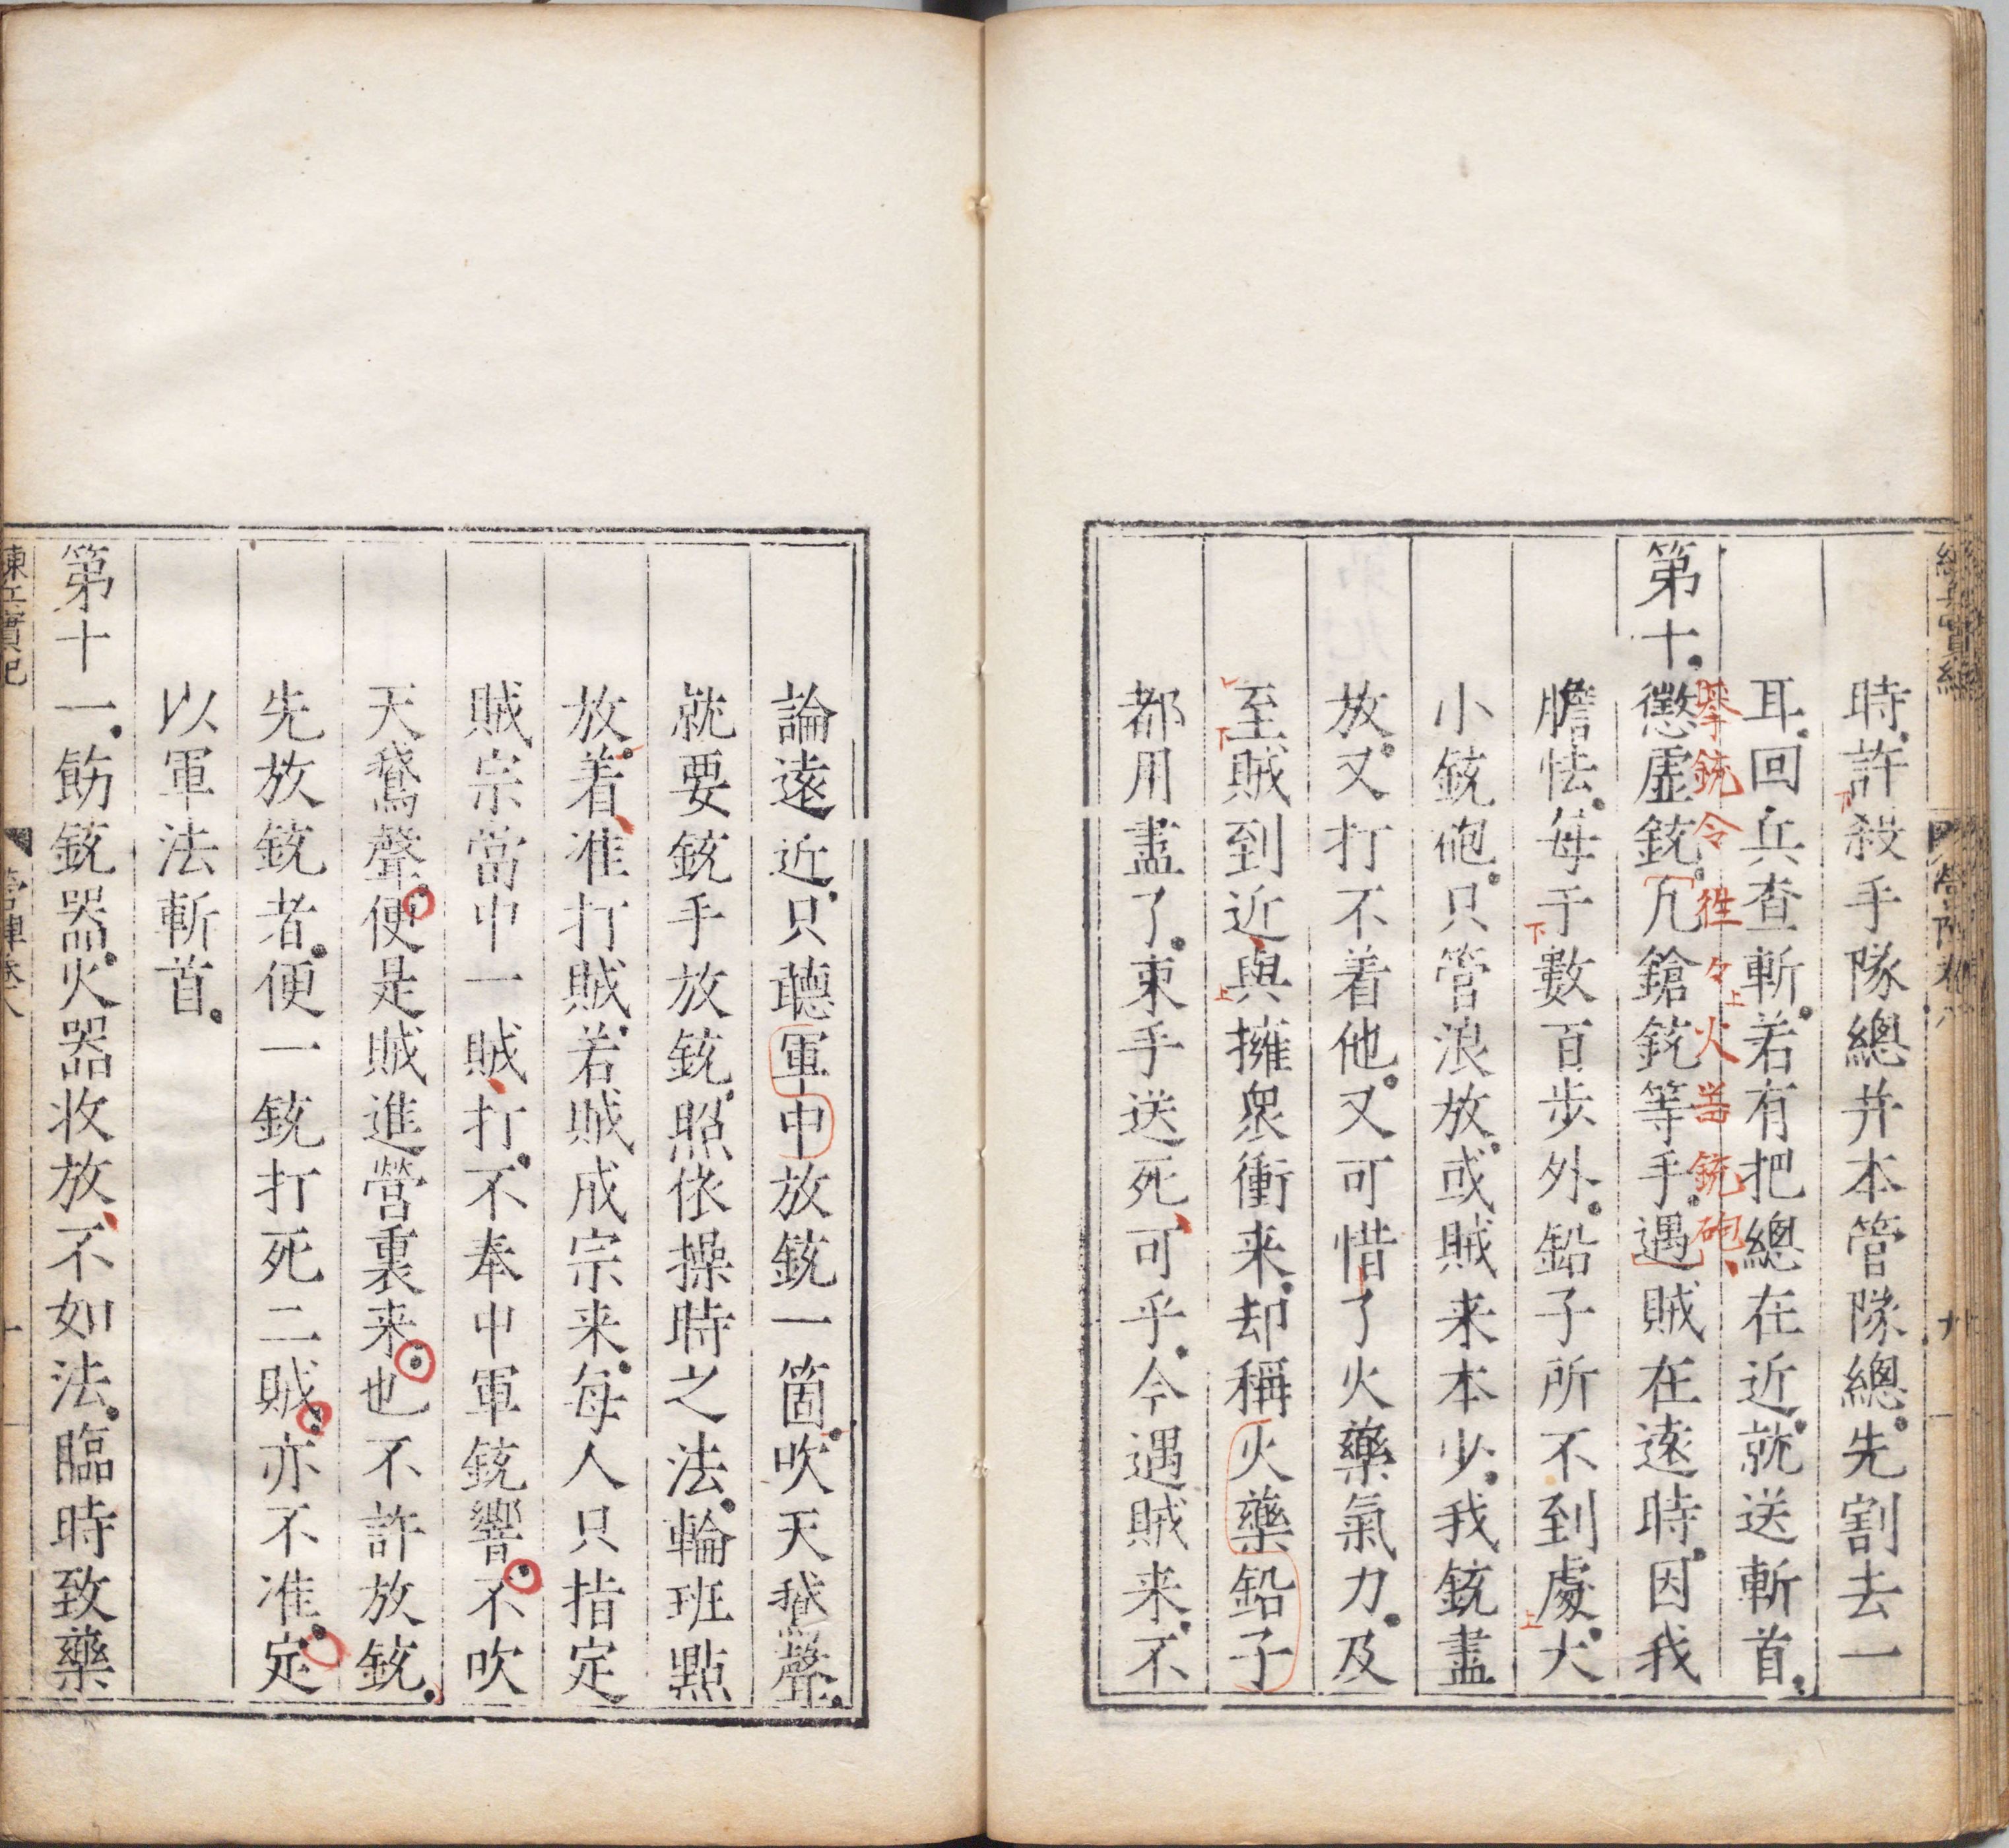 時許殺手隊總并本管隊總先割去一
耳回兵查斬若有把總在近就送斬首
擧銃令
火
銃砲
第十懲虛銃凢鎗銃等手遇賊在遠時因我
膽怯每于數百步外鉛子所不到處大
小銃砲只管浪放或賊来本少我銃盡
放又打不着他又可惜了火藥氣力及
至賊到近與擁衆衝来却稱火藥鉛子
都用盡了束手送死可乎今遇賊来不
下
下
上
上
下
上
論遠近只聽軍中放銃一箇吹天鵞聲
就要銃手放銃照依操時之法輪班點
放着准打賊若賊成宗来每人只指定
賊宗當中一賊打不奉中軍銃響不吹
天鵞聲便是賊進營裏来也不許放銃
先放銃者便一銃打死二賊亦不准定
以軍法斬首
第十一飭銃器火器收放不如法臨時致藥